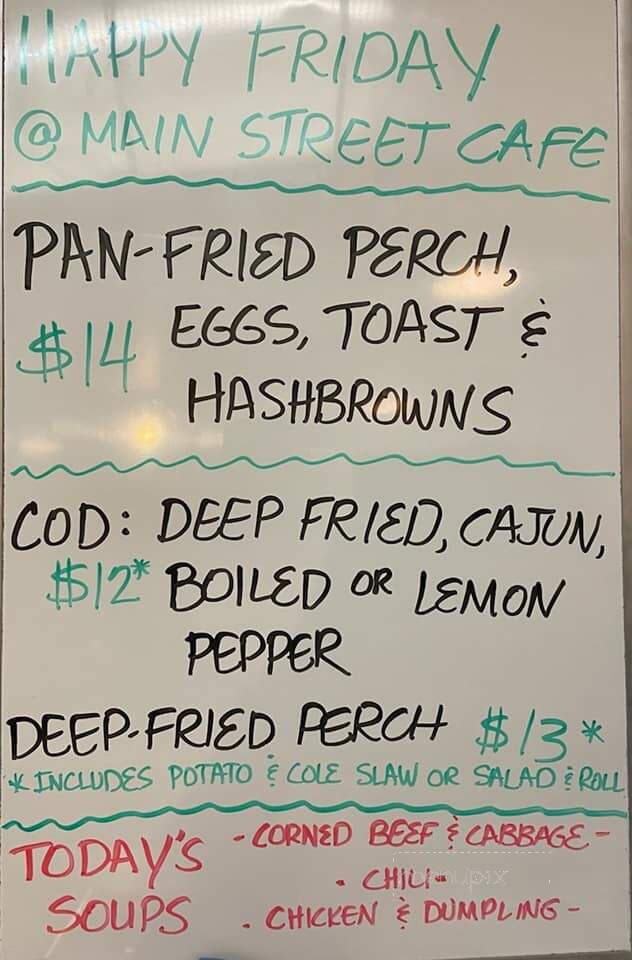 HAPPY FRIDAY
@ MAIN STREET CAFE
PAN-FRIED PERCH,
$14 EGGS, TOAST &
HASHBROWNS
COD: DEEP FRIED, CAJUN,
$12* BOILED OR LEMON
PEPPER
DEEP-FRIED PERCH $13*
*INCLUDES POTATO & COLE SLAW OR SALAD & ROLL
TODAY'S - CORNED BEEF & CABBAGE -
- CHILI -
SOUPS - CHICKEN & DUMPLING -
menupix